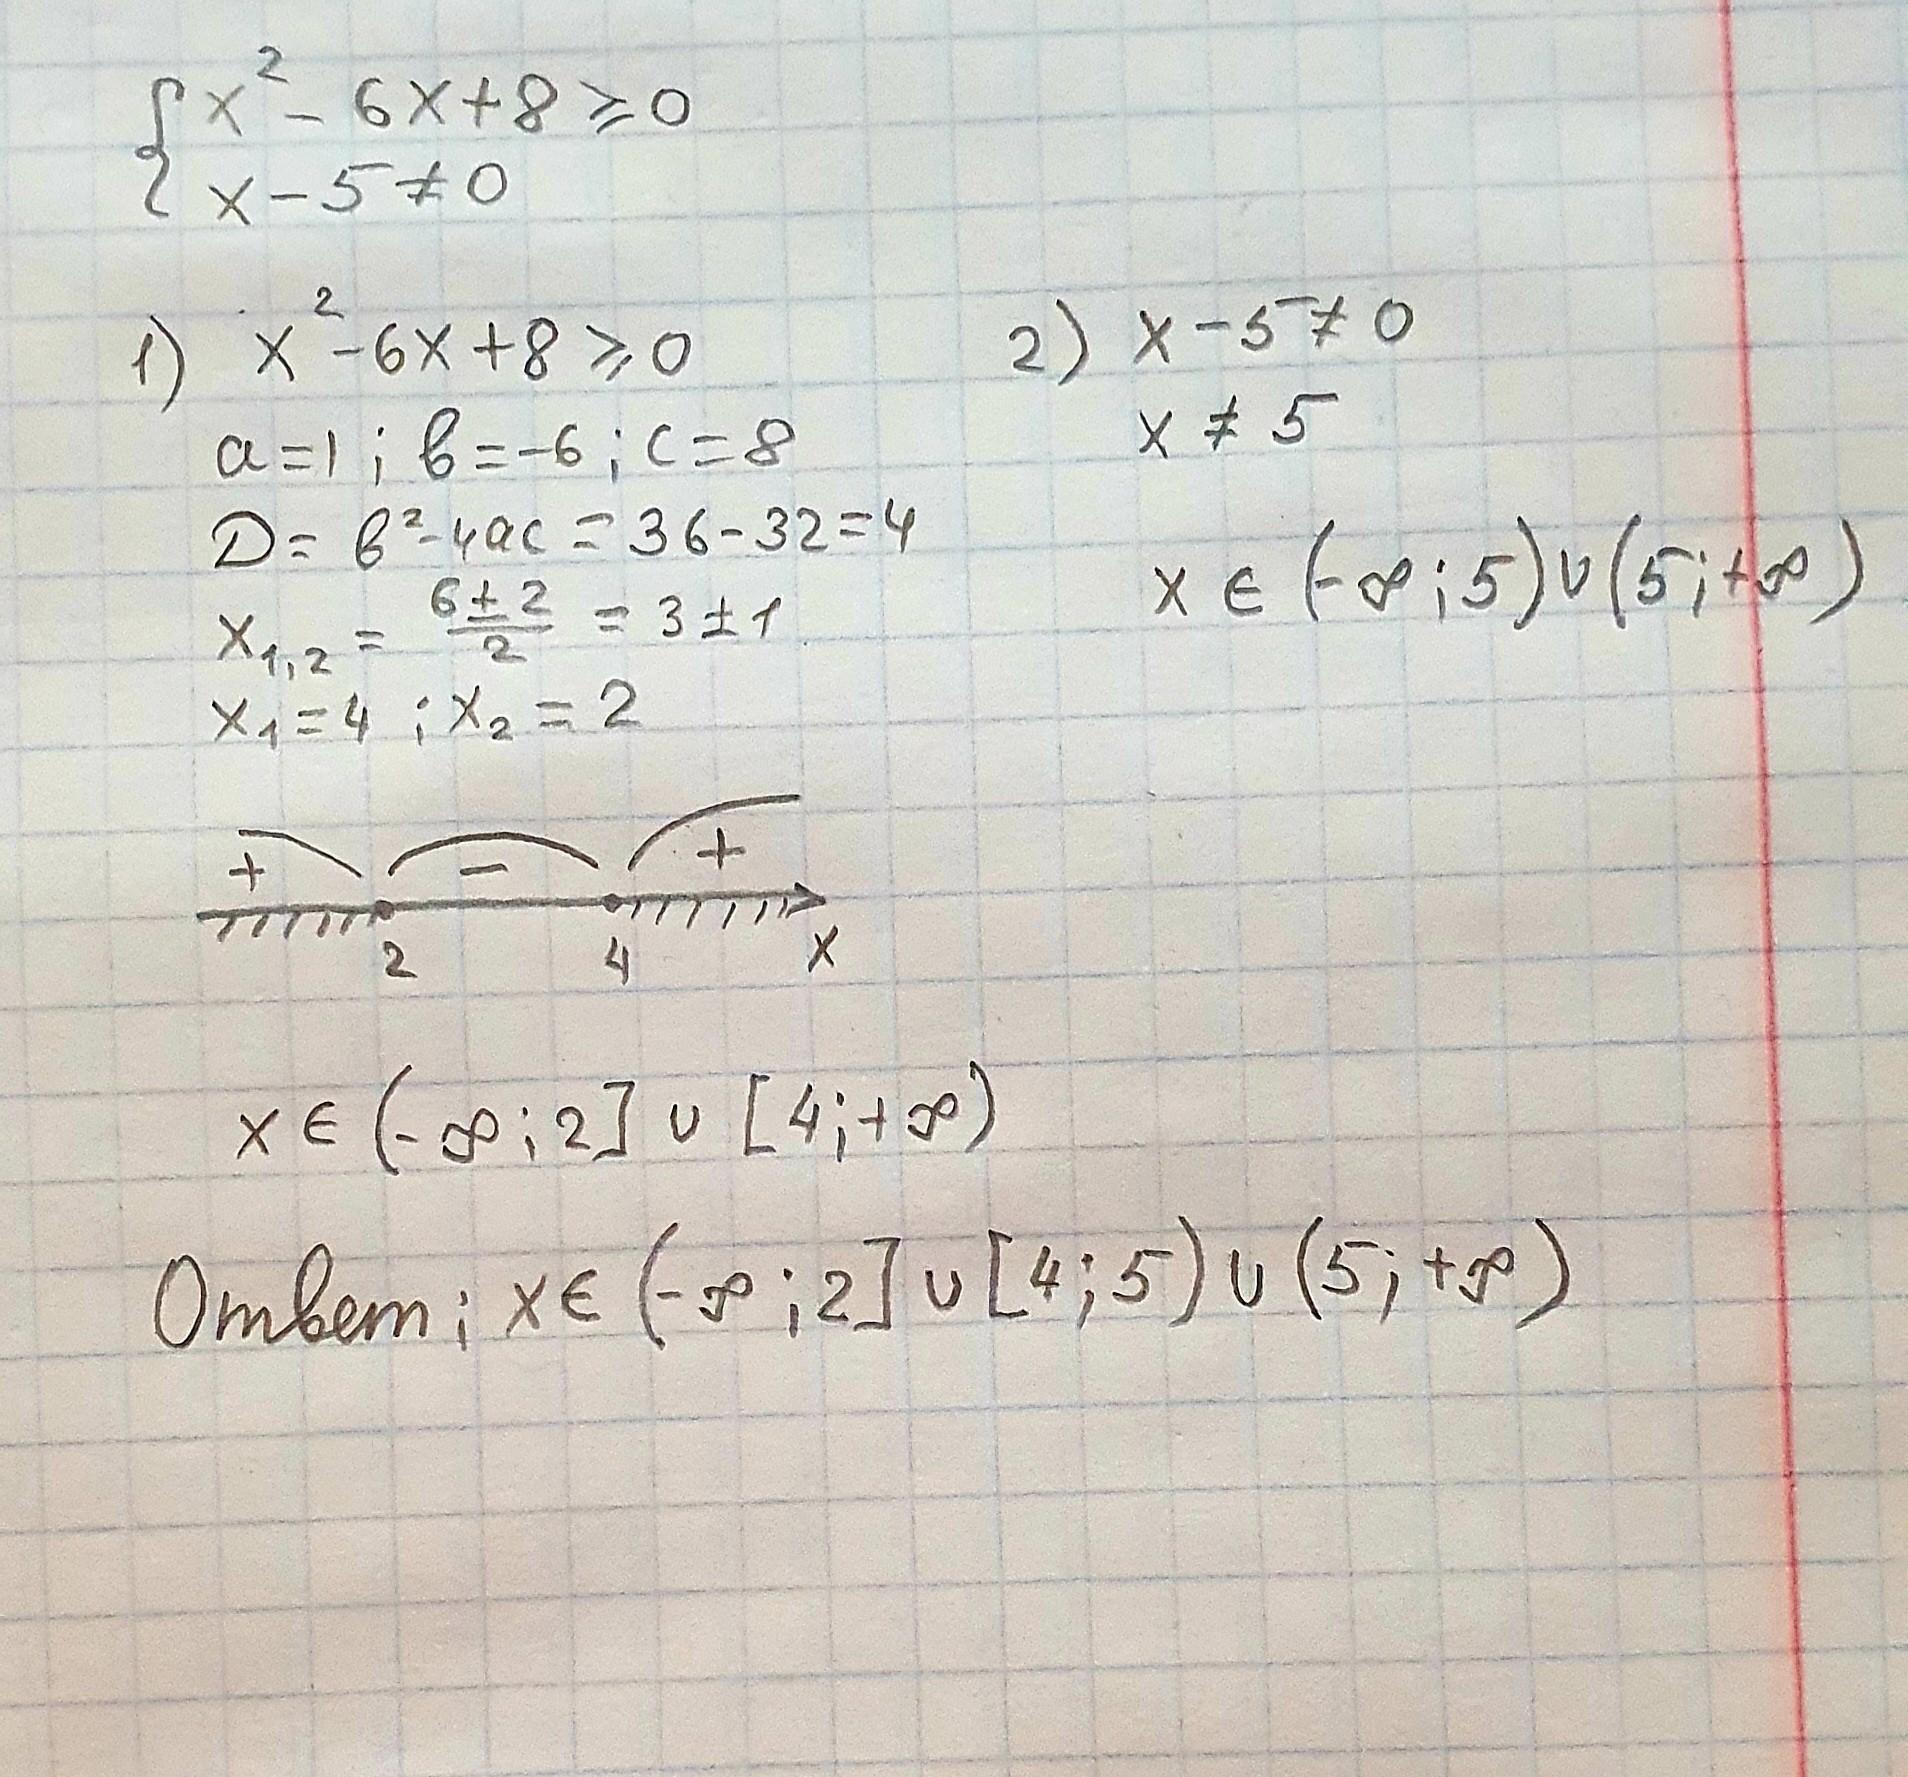 { x² - 6x + 8 ⩾ 0
x - 5 ≠ 0
1) x² - 6x + 8 ⩾ 0
a = 1 ; в = -6 ; c = 8
D = в² - 4ac = 36 - 32 = 4
x₁,₂ = (6 ± 2)/2 = 3 ± 1
x₁ = 4 ; x₂ = 2
+ - +
2 4 x
x ∈ (-∞ ; 2] ∪ [4 ; +∞)
2) x - 5 ≠ 0
x ≠ 5
x ∈ (-∞ ; 5) ∪ (5 ; +∞)
Ответ ; x ∈ (-∞ ; 2] ∪ [4 ; 5) ∪ (5 ; +∞)